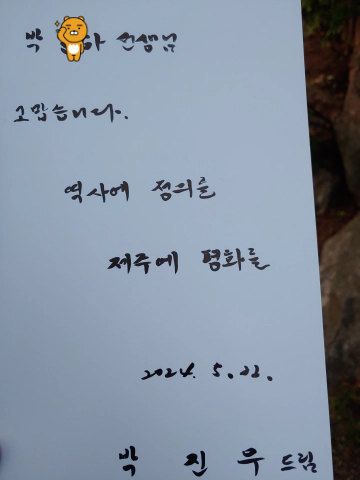 박 아 선생님
고맙습니다.
역사에 정의를
제주에 평화를
2024. 5. 22.
박 진 우 드림